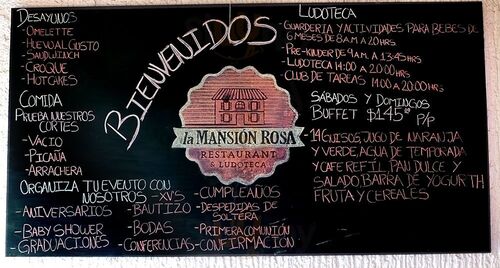 DESAYUNOS
- OMELETTE
- HUEVO AL GUSTO
- SANDWINCH
- CROQUE
- HOTCAKES
COMIDA
PRUEBA NUESTROS
CORTES
- VACIO
- PICAÑA
- ARRACHERA
ORGANIZA TU EVENTO CON
NOSOTROS
- ANIVERSARIOS
- BABY SHOWER
- GRADUACIONES
- XV'S
- BAUTIZO
- BODAS
- CONFERENCIAS
- CUMPLEAÑOS
- DESPEDIDAS DE
SOLTERA
- PRIMERA COMUNIÓN
- CONFIRMACION
BIENVENIDOS
la MANSIÓN ROSA
RESTAURANT
& LUDOTECA
LUDOTECA
- GUARDERIA Y ACTIVIDADES PARA BEBES DE
6 MESES DE 8 A.M A 20HRS
- PRE-KINDER DE 9 A.M. A 13:45HRS
- LUDOTECA 14:00 A 20:00HRS
- CLUB DE TAREAS 14:00 A 20:00HRS
SÁBADOS Y DOMINGOS
BUFFET $145.º P/P
14 GUISOS, JUGO DE NARANJA
Y VERDE, AGUA DE TEMPORADA
Y CAFE REFIL, PAN DULCE Y
SALADO, BARRA DE YOGURTH
FRUTA Y CEREALES